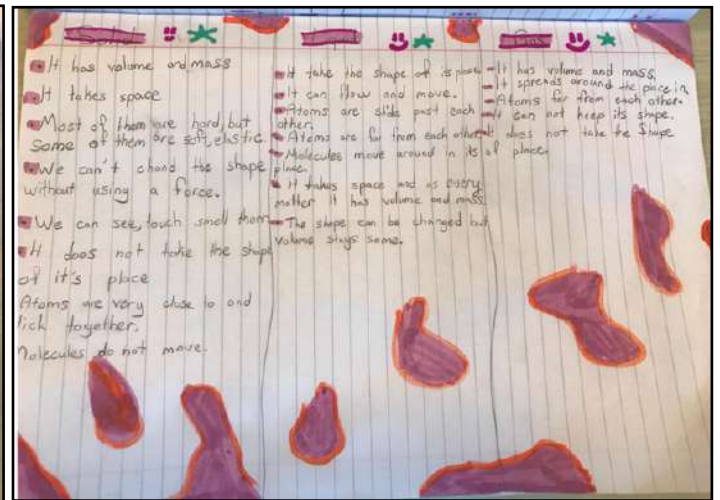 It has volume and mass
It takes space
Most of them are hard, but
some of them are soft, elastic.
We can't chand the shape
without using a force.
We can see, touch smell them
It does not take the shape
of it's place
Atoms are very close to and
tick together.
Molecules do not move.
It take the shape of is place
It can flow and move.
Atoms are slide past each
other.
Atoms are far from each other
Molecules move around in its
place.
It takes space and as every
matter it has volume and mass
The shape can be changed but
volume stays same.
Gas
It has volume and mass,
It spreads around the place in
Atoms far from each other.
It can not keep its shape.
It does not take the shape
of place.